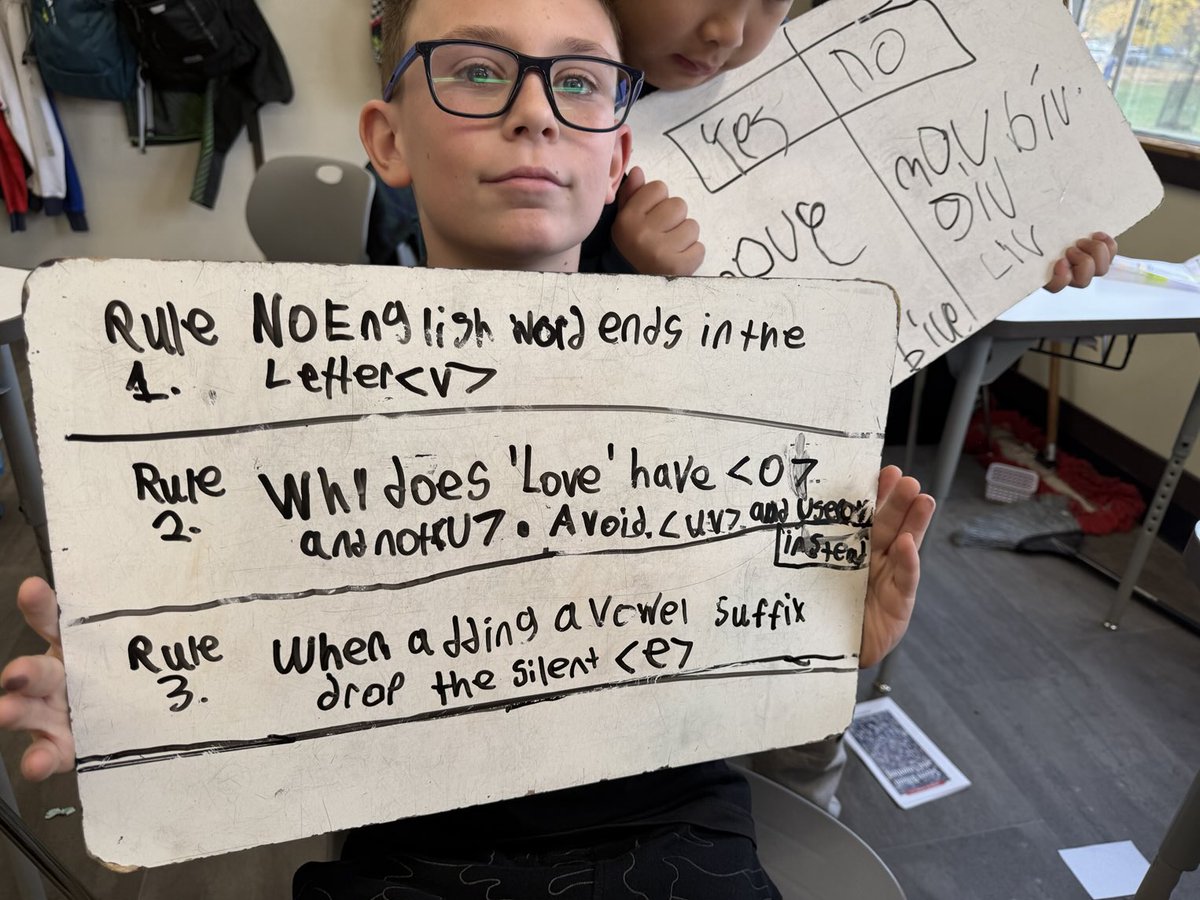 Rule 1. No English word ends in the
Letter <v>
Rule 2. Why does 'Love' have <o>
and not <U>. Avoid <uv> and use
instead
Rule 3. When adding a Vowel suffix
drop the silent <e>
Yes
NO
ove
mov, biv.
Div
Liv